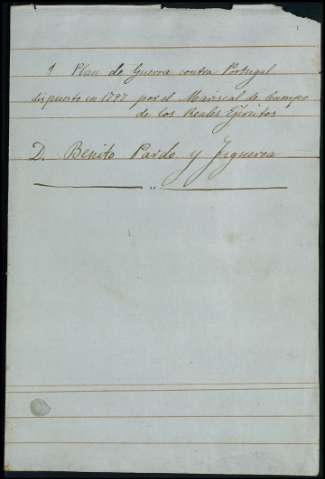 1 Plan de Guerra contra Portugal
dispuesto en 1797 por el Mariscal de Campo
de los Reales Ejércitos
D. Benito Pardo y Figueroa